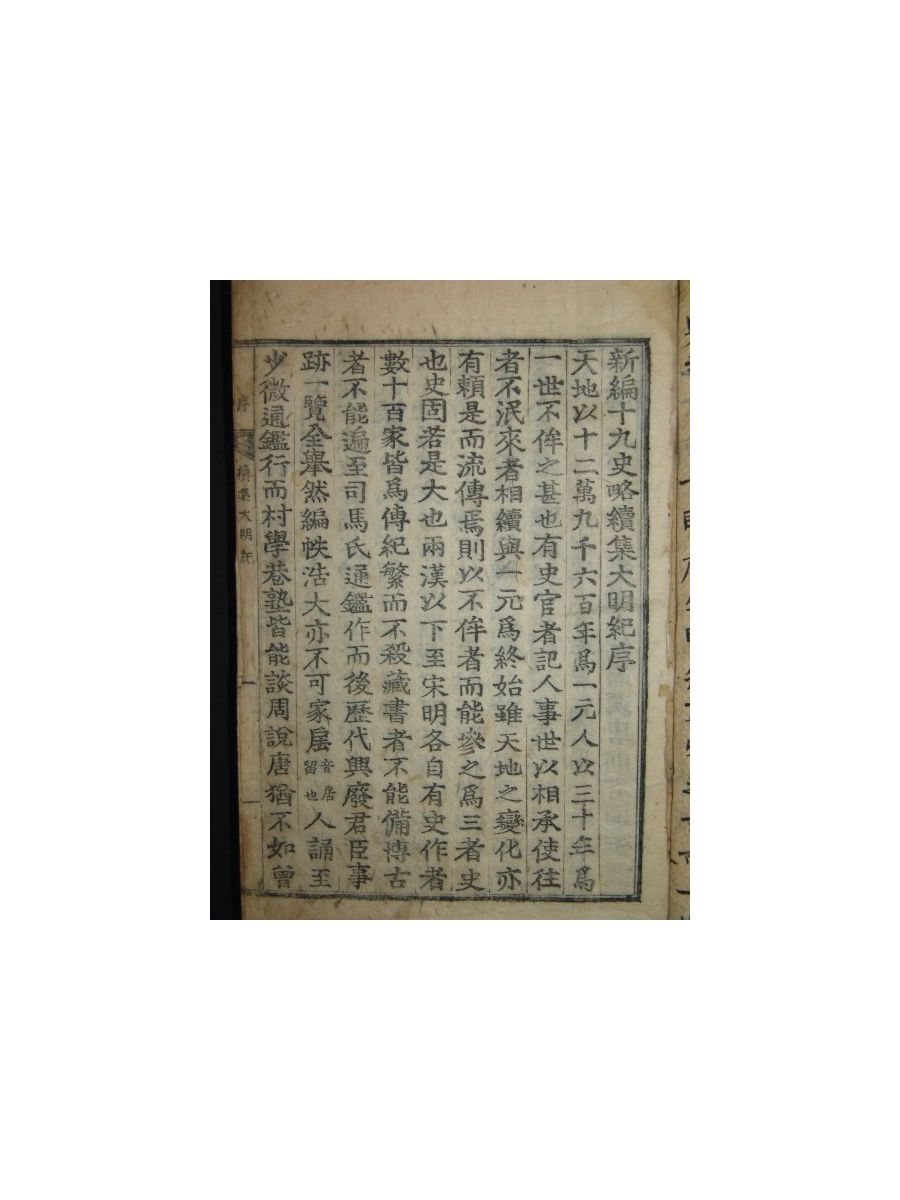 新編十九史略續集大明紀序
天地以十二萬九千六百年爲一元人以三十年爲
一世不侔之甚也有史官者記人事世以相承使往
者不泯來者相續與一元爲終始雖天地之變化亦
有頼是而流傳焉則以不侔者而能參之爲三者史
也史固若是大也兩漢以下至宋明各自有史作者
數十百家皆爲傳紀繁而不殺藏書者不能備博古
者不能遍至司馬氏通鑑作而後歷代興廢君臣事
跡一覽全舉然編帙浩大亦不可家㞐音居留也人誦至
少微通鑑行而村學巷塾皆能談周說唐猶不如曾
序 續集大明紀 一